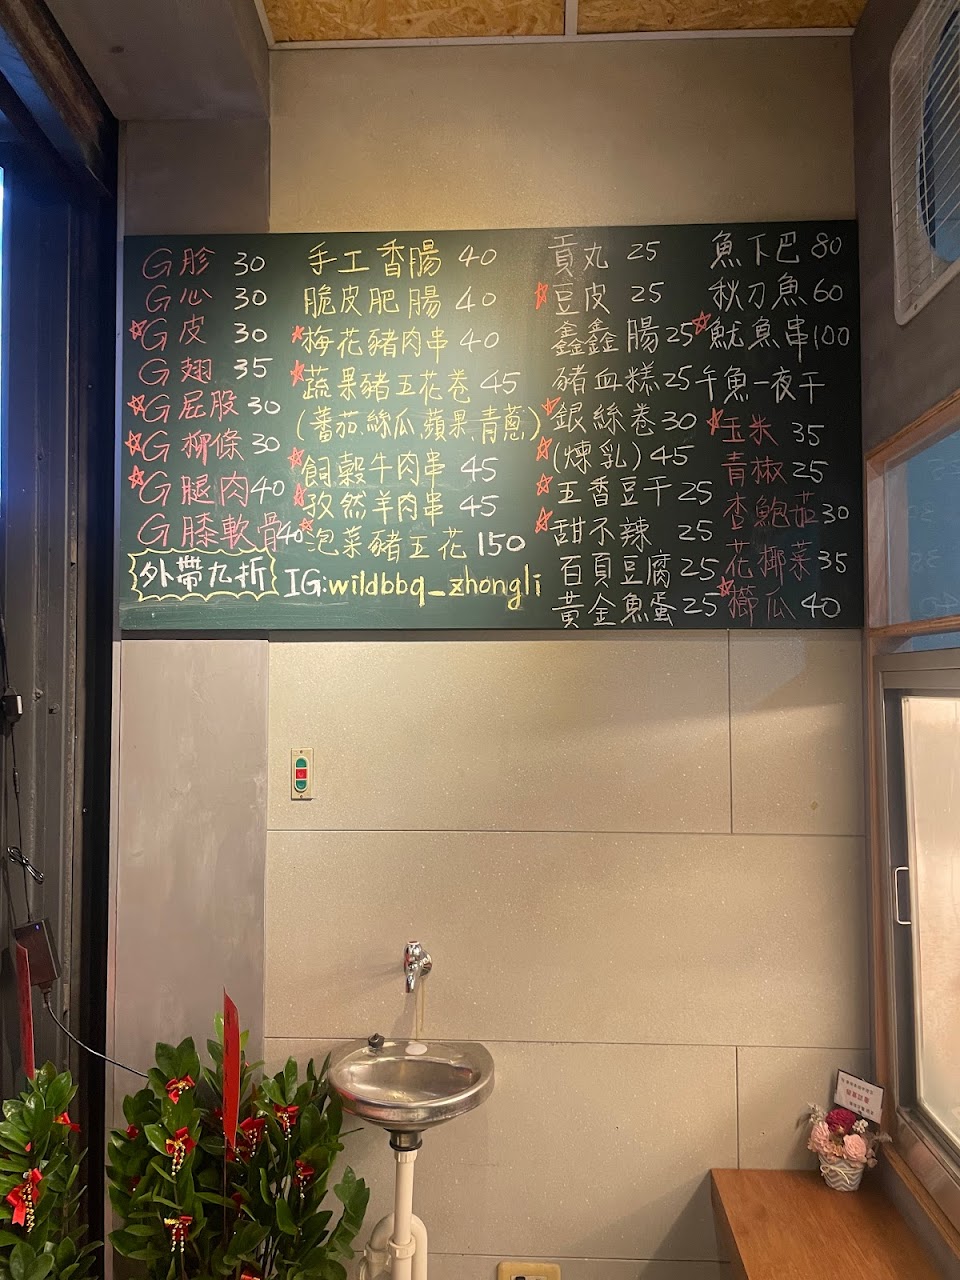 G胗 30
G心 30
☆G皮 30
G翅 35
☆G屁股 30
☆G柳條 30
☆G腿肉 40
G膝軟骨 40
外帶九折
手工香腸 40
脆皮肥腸 40
☆梅花豬肉串 40
☆蔬果豬五花卷 45
(蕃茄.絲瓜.蘋果.青蔥)
☆飼穀牛肉串 45
☆孜然羊肉串 45
☆泡菜豬五花 150
IG:wildbbq_zhongli
貢丸 25
☆豆皮 25
鑫鑫腸 25
豬血糕 25
☆銀絲卷 30
☆(煉乳) 45
☆五香豆干 25
☆甜不辣 25
百頁豆腐 25
黃金魚蛋 25
魚下巴 80
秋刀魚 60
☆魷魚串 100
午魚一夜干
☆玉米 35
青椒 25
杏鮑茄 30
花椰菜 35
☆櫛瓜 40